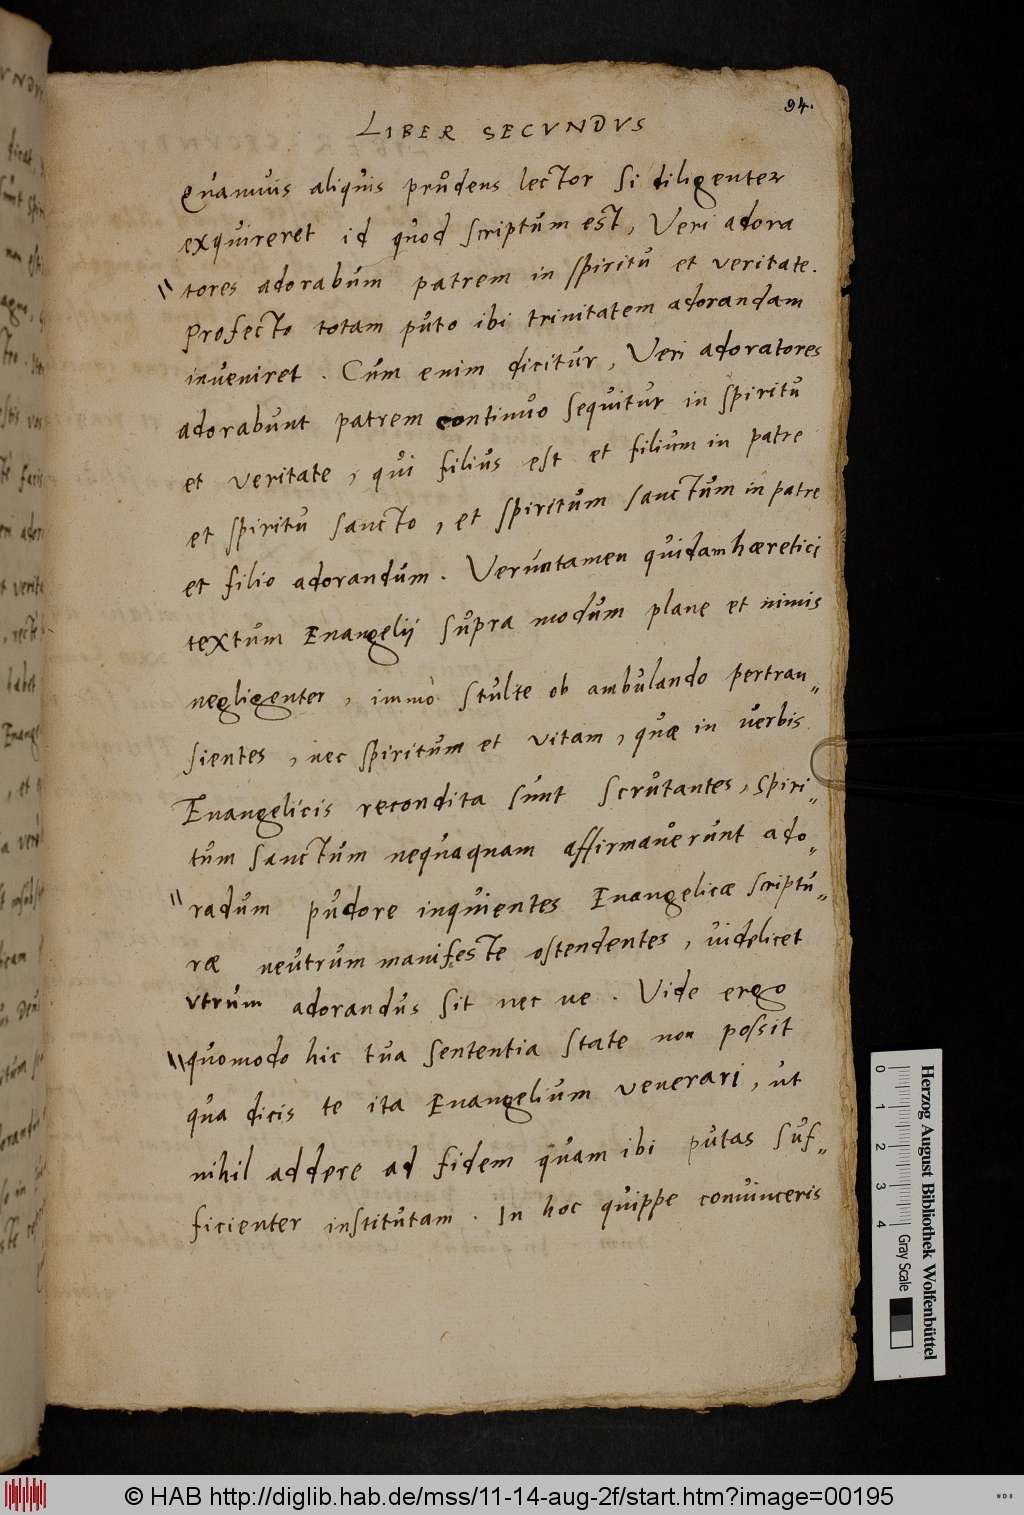 94.
LIBER SECVNDVS
Quamuis aliquis prudens lector si diligenter
exquireret id quod scriptum est, Veri adora
tores adorabunt patrem in spiritu et veritate.
Profecto totam puto ibi trinitatem adorandam
inueniret. Cum enim dicitur, Veri adoratores
adorabunt patrem continuo sequitur in spiritu
et veritate, qui filius est et filium in patre
et spiritu sancto, et spiritum sanctum in patre
et filio adorandum. Veruntamen quidam hæretici
textum Euangelij supra modum plane et nimis
negligenter, immò stulte ob ambulando pertran„
sientes, nec spiritum et vitam, quæ in verbis
Euangelicis recondita sunt scrutantes, spiri„
tum sanctum nequaquam affirmauerunt ado„
radum pudore inquientes Euangelicæ scriptu„
ræ neutrum manifeste ostendentes, uidelicet
vtrum adorandus sit nec ne. Vide ergo
quomodo hic tua sententia state non possit
qua dicis te ita Euangelium venerari, ut
nihil addere ad fidem quam ibi putas suf„
ficienter institutam. In hoc quippe conuinceris
Herzog August Bibliothek Wolfenbüttel
0 1 2 3 4 Gray Scale
© HAB http://diglib.hab.de/mss/11-14-aug-2f/start.htm?image=00195